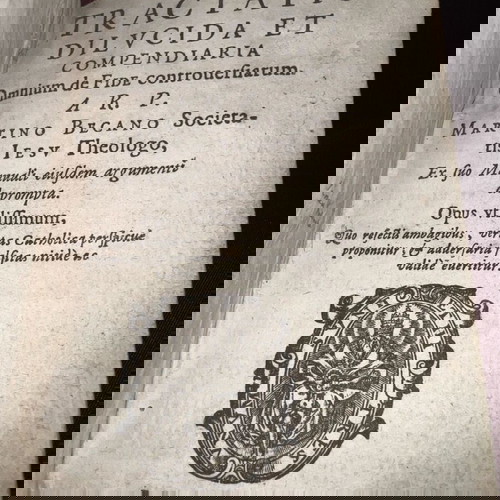 TRACTATI
DILVCIDA ET
COMPENDIARIA
Omnium de FIDE controuersiarum.
A R. P.
MARTINO BECANO Societa-
tis IESV Theologo,
Ex suo Manuali eiusdem argumenti
deprompta.
Opus vtilissimum,
Quo reiectis ambagibus, veritas Catholica perspicue
proponitur; & aduersaria falsitas
valide euertitur.